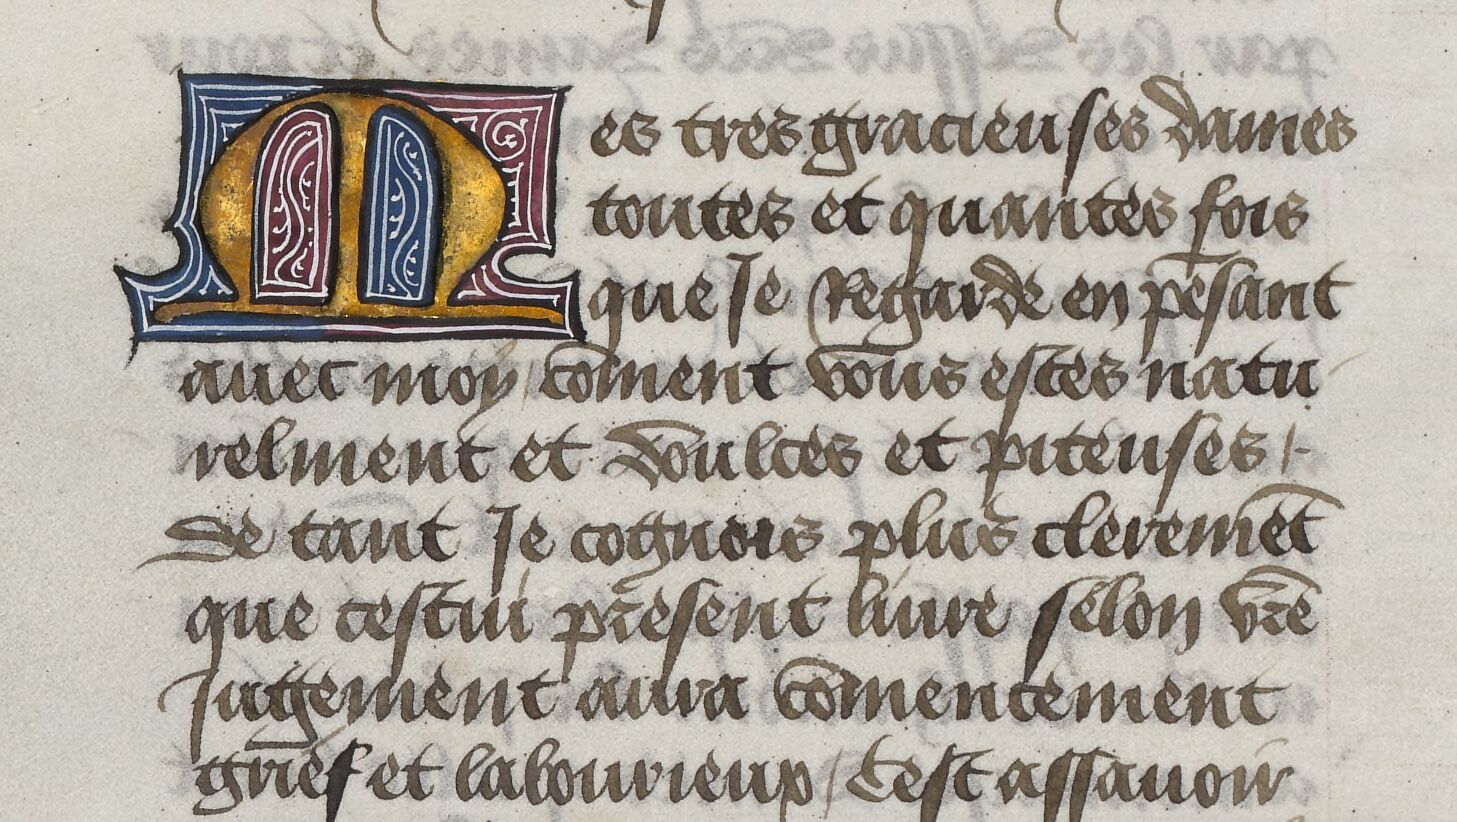 Mes tres gracieuses dames
toutes et quantes fois
que Je Regarde en pesant
auec moy / coment vous estes natu
relment et doulces et piteuses /.
de tant Je cognois plus cleremēt
que cestui present liure selon vr̄e
Jugement aura comencement
grief et labourieux / Cest assauoir